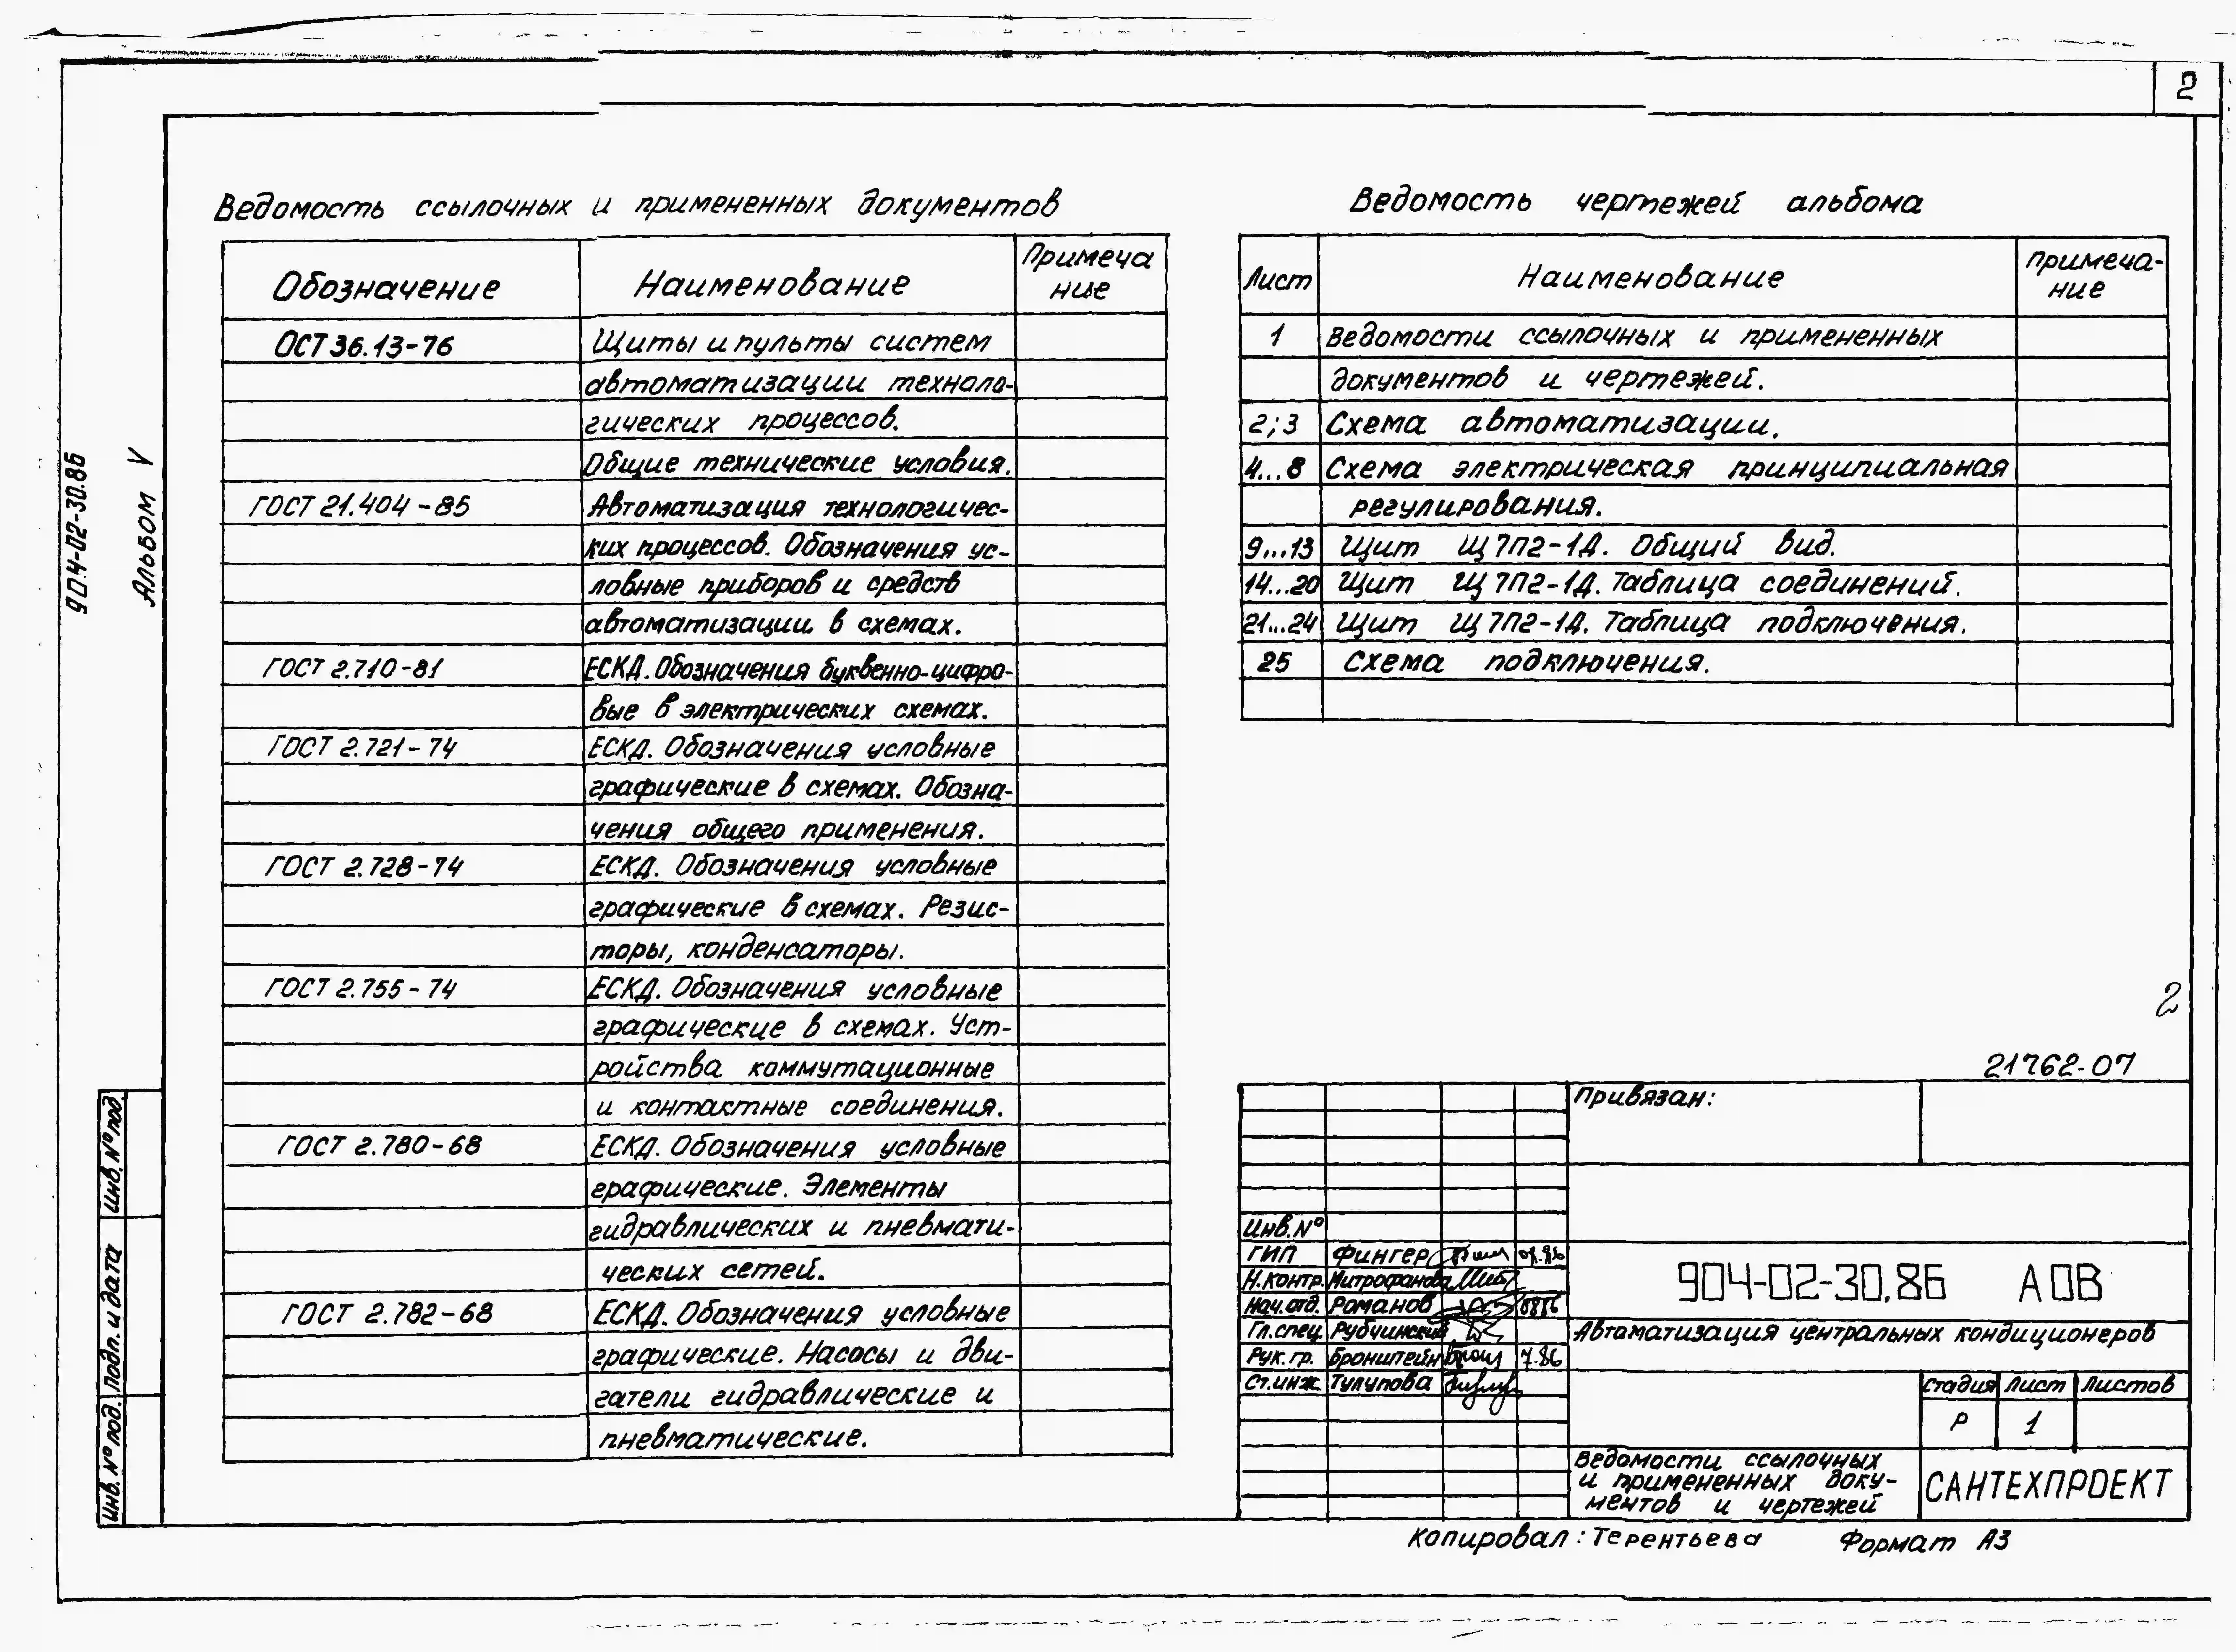 2
904-02-30.86
Альбом V
Ведомость ссылочных и примененных документов
Обозначение Наименование Примеча
ние
ОСТ 36.13-76 Щиты и пульты систем
автоматизации техноло-
гических процессов.
Общие технические условия.
ГОСТ 21.404-85 Автоматизация технологичес-
ких процессов. Обозначения ус-
ловные приборов и средств
автоматизации в схемах.
ГОСТ 2.710-81 ЕСКД. Обозначения буквенно-цифро-
вые в электрических схемах.
ГОСТ 2.721-74 ЕСКД. Обозначения условные
графические в схемах. Обозна-
чения общего применения.
ГОСТ 2.728-74 ЕСКД. Обозначения условные
графические в схемах. Резис-
торы, конденсаторы.
ГОСТ 2.755-74 ЕСКД. Обозначения условные
графические в схемах. Уст-
ройства коммутационные
и контактные соединения.
ГОСТ 2.780-68 ЕСКД. Обозначения условные
графические. Элементы
гидравлических и пневмати-
ческих сетей.
ГОСТ 2.782-68 ЕСКД. Обозначения условные
графические. Насосы и дви-
гатели гидравлические и
пневматические.
Ведомость чертежей альбома
Лист Наименование Примеча-
ние
1 Ведомости ссылочных и примененных
документов и чертежей.
2;3 Схема автоматизации.
4...8 Схема электрическая принципиальная
регулирования.
9...13 Щит Щ7П2-1Д. Общий вид.
14...20 Щит Щ7П2-1Д. Таблица соединений.
21...24 Щит Щ7П2-1Д. Таблица подключения.
25 Схема подключения.
2
21762-07
Привязан:
Инв.№
ГИП Фингер
Н.контр. Митрофанова
Нач.отд. Романов
Гл.спец. Рубчинский
Рук.гр. Бронштейн 7.86
Ст.инж. Тулупова
904-02-30.86 АОВ
Автоматизация центральных кондиционеров
Стадия Лист Листов
Р 1
Ведомости ссылочных
и примененных доку-
ментов и чертежей
САНТЕХПРОЕКТ
Копировал: Терентьева Формат А3
Инв. № под.
Подп. и дата
Инв. № под.